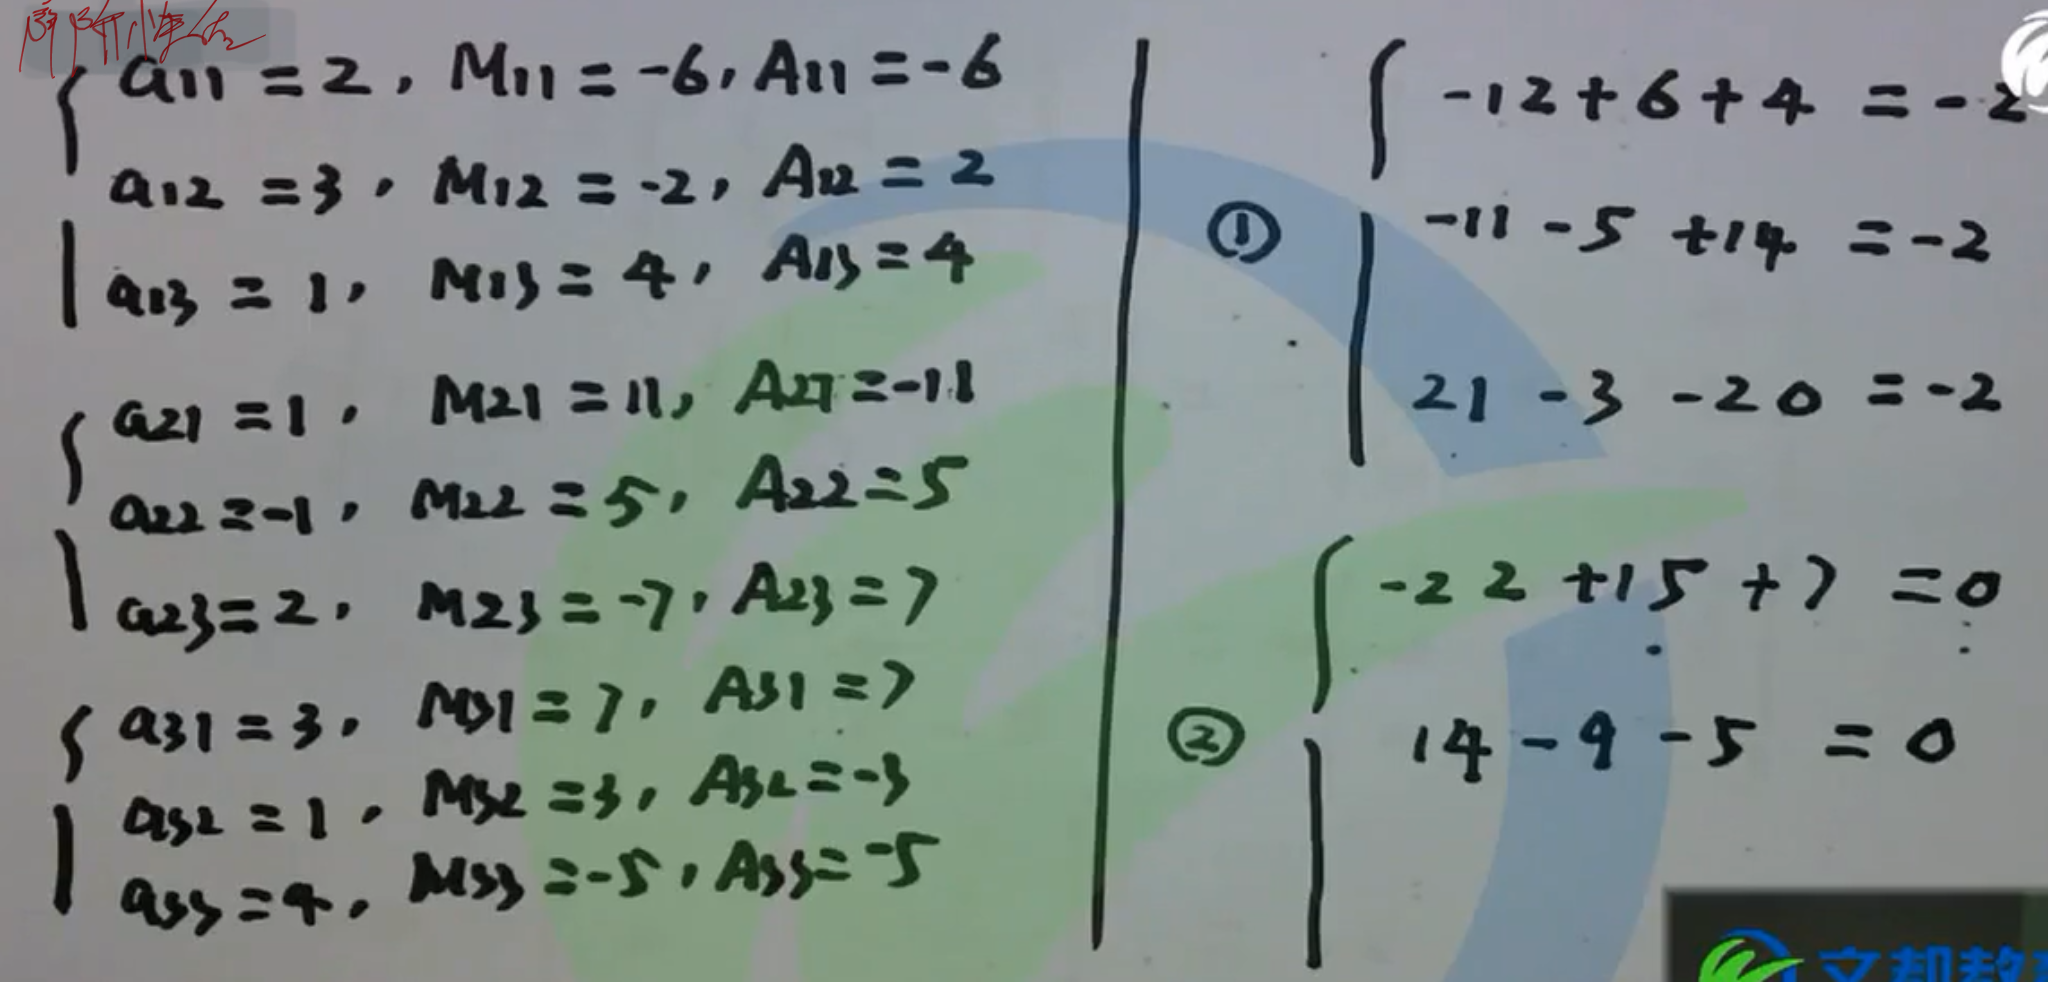 a11 = 2, M11 = -6, A11 = -6
a12 = 3, M12 = -2, A12 = 2
a13 = 1, M13 = 4, A13 = 4
a21 = 1, M21 = 11, A21 = -11
a22 = -1, M22 = 5, A22 = 5
a23 = 2, M23 = -7, A23 = 7
a31 = 3, M31 = 7, A31 = 7
a32 = 1, M32 = 3, A32 = -3
a33 = 4, M33 = -5, A33 = -5
①
-12 + 6 + 4 = -2
-11 - 5 + 14 = -2
21 - 3 - 20 = -2
②
-22 + 15 + 7 = 0
14 - 9 - 5 = 0
文都教